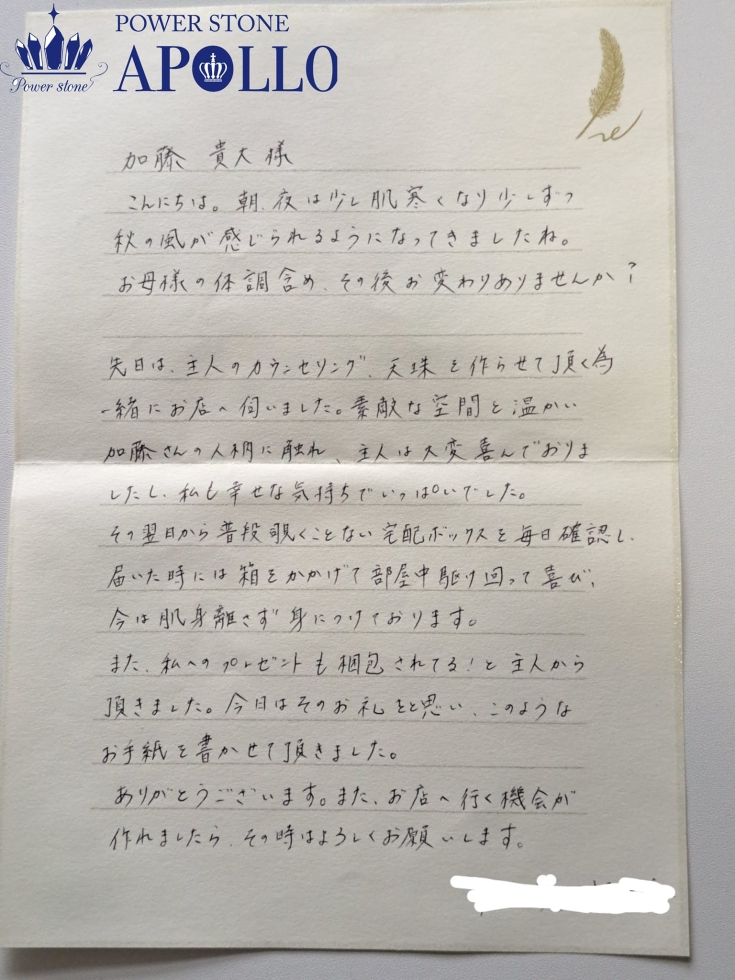 POWER STONE
APOLLO
Power stone
加藤 貴大 様
こんにちは。朝、夜は少し肌寒くなり少しずつ
秋の風が感じられるようになってきましたね。
お母様の体調含め、その後お変わりありませんか?
先日は、主人のカウンセリング、天珠を作らせて頂く為
一緒にお店へ伺いました。素敵な空間と温かい
加藤さんの人柄に触れ、主人は大変喜んでおりま
したし、私も幸せな気持ちでいっぱいでした。
その翌日から普段覗くことない宅配ボックスを毎日確認し、
届いた時には箱をかかげて部屋中駆け回って喜び、
今は肌身離さず身につけております。
また、私へのプレゼントも梱包されてる!と主人から
頂きました。今日はそのお礼をと思い、このような
お手紙を書かせて頂きました。
ありがとうございます。また、お店へ行く機会が
作れましたら、その時はよろしくお願いします。